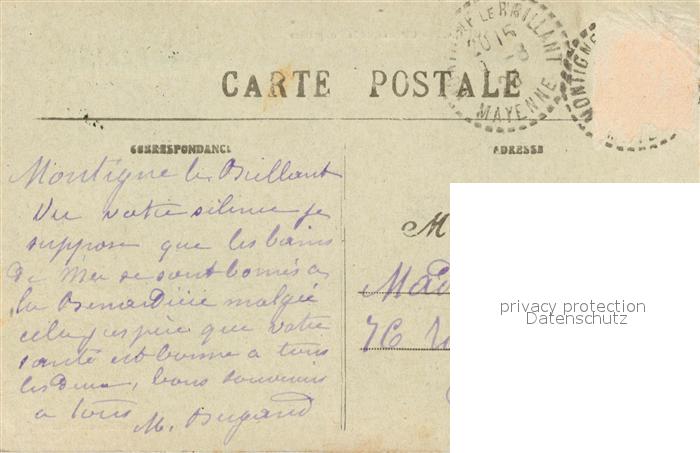 CARTE POSTALE
MONTIGNÉ LE BRILLANT
20 15
8
MAYENNE
MONTIGNÉ
CORRESPONDANCE
ADRESSE
Montigne le Brillant
Vu votre silence je
suppose que les bains
de Mer se sont bornés a
la malgré
cela j'espère que votre
santé est bonne a tous
les deux, bons souvenirs
a tous M.
M
Mad
76
privacy protection
Datenschutz